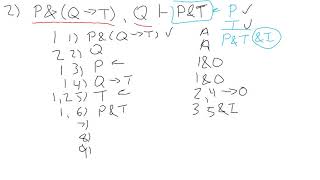 2) P&(Q→T), Q ⊢ P&T ← P ✓
T ✓
P&T &I
1 1) P&(Q→T) ✓ A
2 2) Q A
1 3) P ← 1&O
1 4) Q→T 1&O
1,2 5) T ← 2,4→O
1, 6) P&T 3,5&I
7)
8)
9)